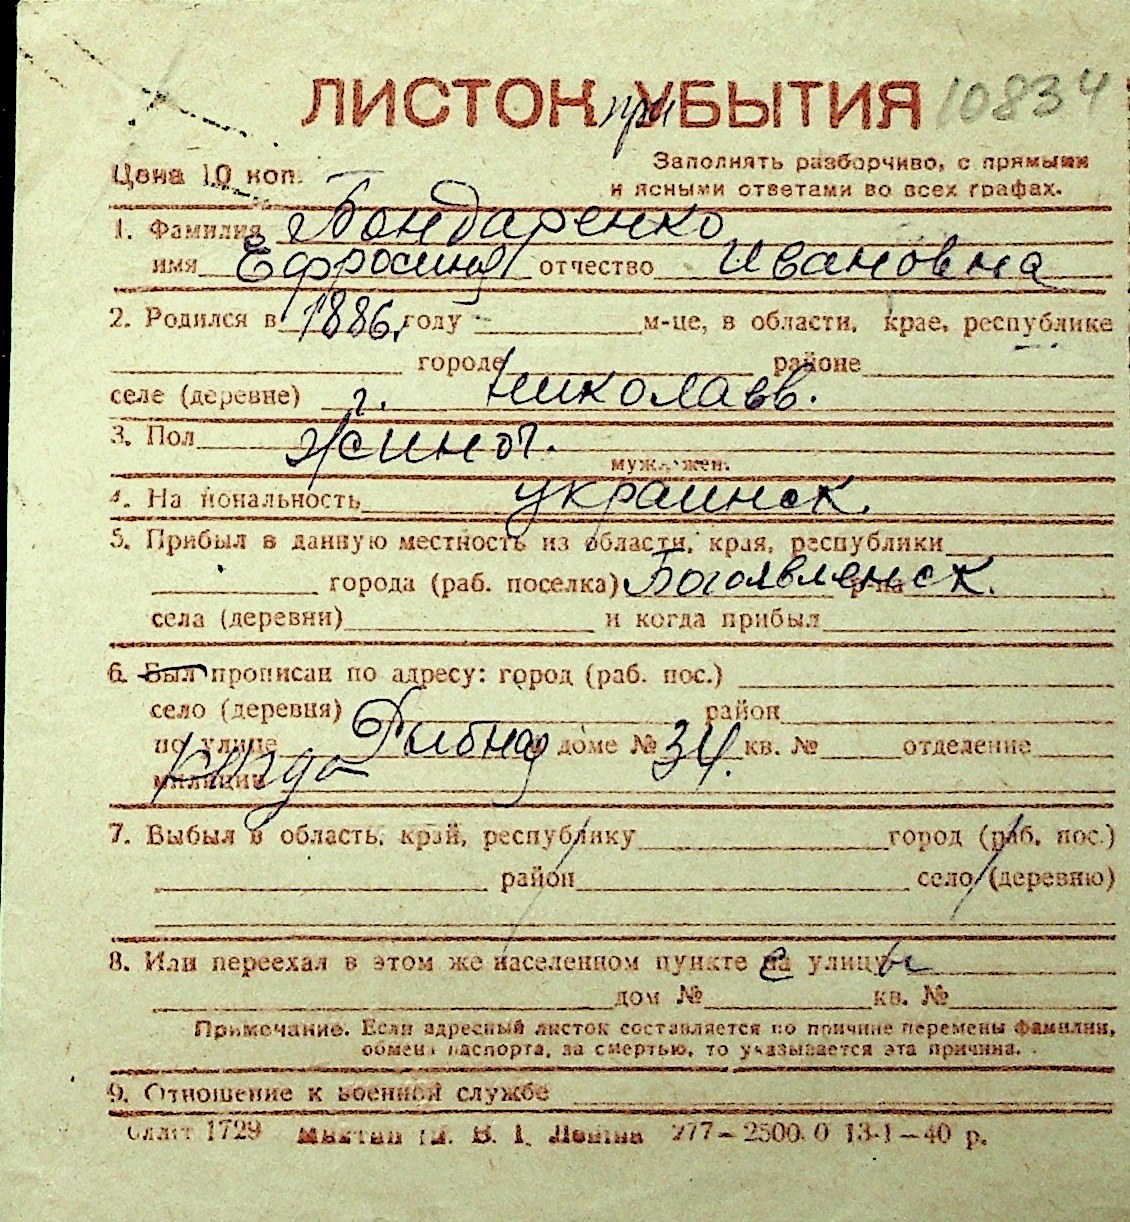 ЛИСТОК при УБЫТИЯ 10834
Цена 10 коп.
Заполнять разборчиво, с прямыми
и ясными ответами во всех графах.
1. Фамилия Бондаренко
имя Ефросиния отчество Ивановна
2. Родился в 1886 году м-це, в области, крае, республике
городе районе
селе (деревне) г. Николаев.
3. Пол
муж., жен.
4. Национальность украинск.
5. Прибыл в данную местность из области, края, республики
города (раб. поселка) Богоявленск. р-на
села (деревни) и когда прибыл
6. Был прописан по адресу: город (раб. пос.)
село (деревня) район
по улице Рыбная доме № 34. кв. № отделение
милиции
7. Выбыл в область, край, республику город (раб. пос.)
район село (деревню)
8. Или переехал в этом же населенном пункте на улицу
дом № кв. №
Примечание. Если адресный листок составляется по причине перемены фамилии,
обмена паспорта, за смертью, то указывается эта причина.
9. Отношение к военной службе
1729 В. І. Леніна 277—2500.0 13-1—40 р.